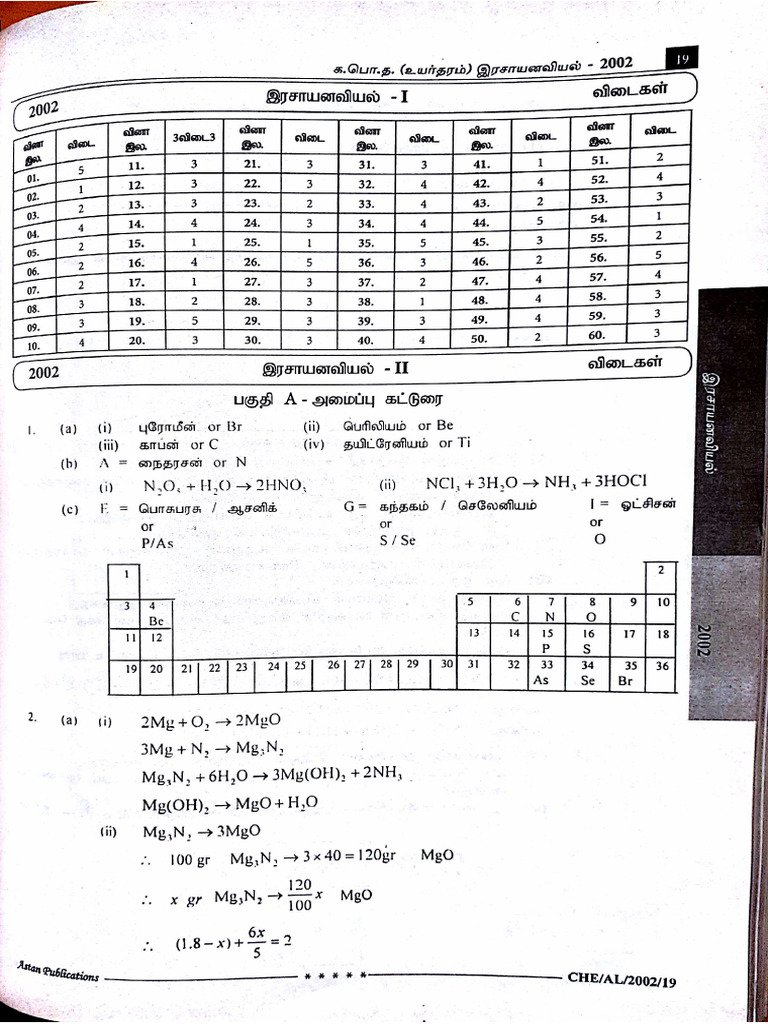 க.பொ.த. (உயர்தரம்) இரசாயனவியல் - 2002 19
2002 இரசாயனவியல் - I விடைகள்
வினா இல. விடை வினா இல. 3விடை3 வினா இல. விடை வினா இல. விடை வினா இல. விடை வினா இல. விடை
01. 5 11. 3 21. 3 31. 3 41. 1 51. 2
02. 1 12. 3 22. 3 32. 4 42. 4 52. 4
03. 2 13. 3 23. 2 33. 4 43. 2 53. 3
04. 4 14. 4 24. 3 34. 4 44. 5 54. 1
05. 2 15. 1 25. 1 35. 5 45. 3 55. 2
06. 2 16. 4 26. 5 36. 3 46. 2 56. 5
07. 2 17. 1 27. 3 37. 2 47. 4 57. 4
08. 3 18. 2 28. 3 38. 1 48. 4 58. 3
09. 3 19. 5 29. 3 39. 3 49. 4 59. 3
10. 4 20. 3 30. 3 40. 4 50. 2 60. 3
2002 இரசாயனவியல் - II விடைகள்
பகுதி A - அமைப்பு கட்டுரை
1. (a) (i) புரோமீன் or Br (ii) பெரிலியம் or Be
(iii) காபன் or C (iv) தயிட்ரேனியம் or Ti
(b) A = நைதரசன் or N
(i) N₂O₅ + H₂O → 2HNO₃ (ii) NCl₃ + 3H₂O → NH₃ + 3HOCl
(c) E = பொசுபரசு / ஆசனிக் G = கந்தகம் / செலேனியம் I = ஒட்சிசன்
or or or
P/As S / Se O
1 2
3 4 5 6 7 8 9 10
Be C N O
11 12 13 14 15 16 17 18
P S
19 20 21 22 23 24 25 26 27 28 29 30 31 32 33 34 35 36
As Se Br
2. (a) (i) 2Mg + O₂ → 2MgO
3Mg + N₂ → Mg₃N₂
Mg₃N₂ + 6H₂O → 3Mg(OH)₂ + 2NH₃
Mg(OH)₂ → MgO + H₂O
(ii) Mg₃N₂ → 3MgO
∴ 100 gr Mg₃N₂ → 3 × 40 = 120gr MgO
∴ x gr Mg₃N₂ → 120/100 x MgO
∴ (1.8 – x) + 6x/5 = 2
Astan Publications * * * * * CHE/AL/2002/19
இரசாயனவியல்
2002